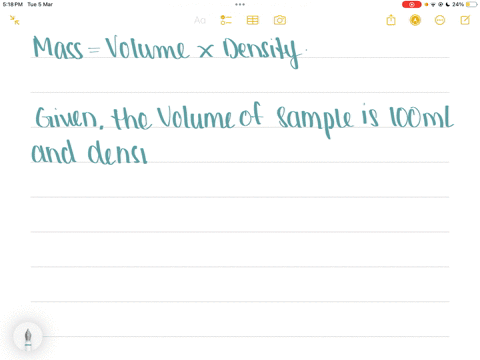 5:18 PM Tue 5 Mar
24%
Aa
Mass = Volume x Density.
Given, the Volume of sample is 100mL
and densi